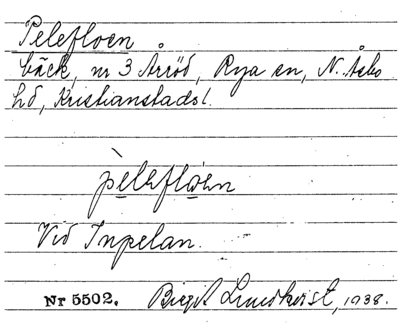 Pelefloen
bäck, nr 3 Årröd, Rya sn, N. Åsbo
hd, Kristianstads l.
pèlefløen
Vid Inpelan.
Nr 5502. Birgit Lundkvist, 1938.